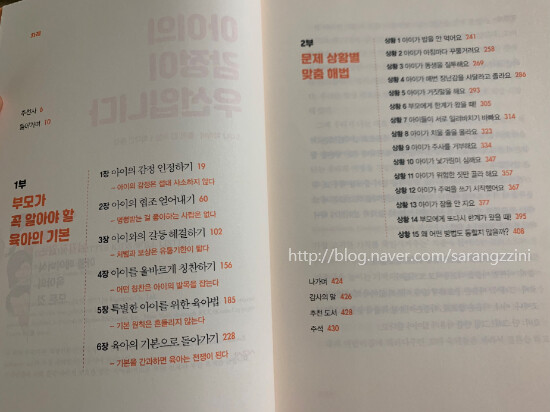 차례
추천사 8
들어가며 10
1부
부모가
꼭 알아야 할
육아의 기본
1장 아이의 감정 인정하기 19
– 아이의 감정은 절대 사소하지 않다
2장 아이의 협조 얻어내기 60
– 명령받는 걸 좋아하는 사람은 없다
3장 아이와의 갈등 해결하기 102
– 처벌과 보상은 유통기한이 짧다
4장 아이를 올바르게 칭찬하기 156
– 어떤 칭찬은 아이의 발목을 잡는다
5장 특별한 아이를 위한 육아법 185
– 기본 원칙은 흔들리지 않는다
6장 육아의 기본으로 돌아가기 228
– 기본을 간과하면 육아는 전쟁이 된다
2부
문제 상황별
맞춤 해법
상황 1 아이가 밥을 안 먹어요 241
상황 2 아이가 아침마다 꾸물거려요 258
상황 3 아이가 동생을 질투해요 269
상황 4 아이가 매번 장난감을 사달라고 졸라요 286
상황 5 아이가 거짓말을 해요 293
상황 6 부모에게 한계가 왔을 때! 305
상황 7 아이들이 서로 일러바치기 바빠요 314
상황 8 아이가 치울 줄을 몰라요 333
상황 9 아이가 주사를 거부해요 339
상황 10 아이가 낯가림이 심해요 347
상황 11 아이가 위험한 짓만 골라 해요 357
상황 12 아이가 주먹을 쓰기 시작했어요 367
상황 13 아이가 잠을 안 자요 377
상황 14 부모에게 또다시 한계가 왔을 때! 395
상황 15 왜 어떤 방법도 통하지 않을까? 408
나가며 424
감사의 말 426
추천 도서 428
주석 430
http://blog.naver.com/sarangzzini